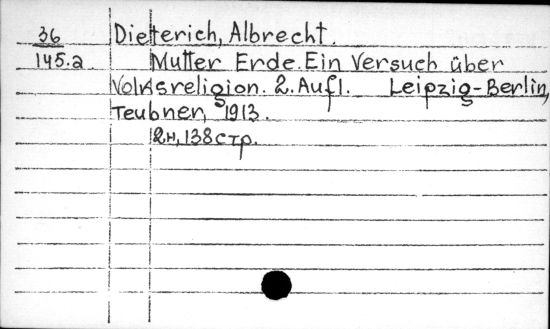 36 Dieterich, Albrecht.
145.a Mutter Erde. Ein Versuch über
Volksreligion. 2. Aufl. Leipzig-Berlin,
Teubner, 1913.
2н, 138 стр.